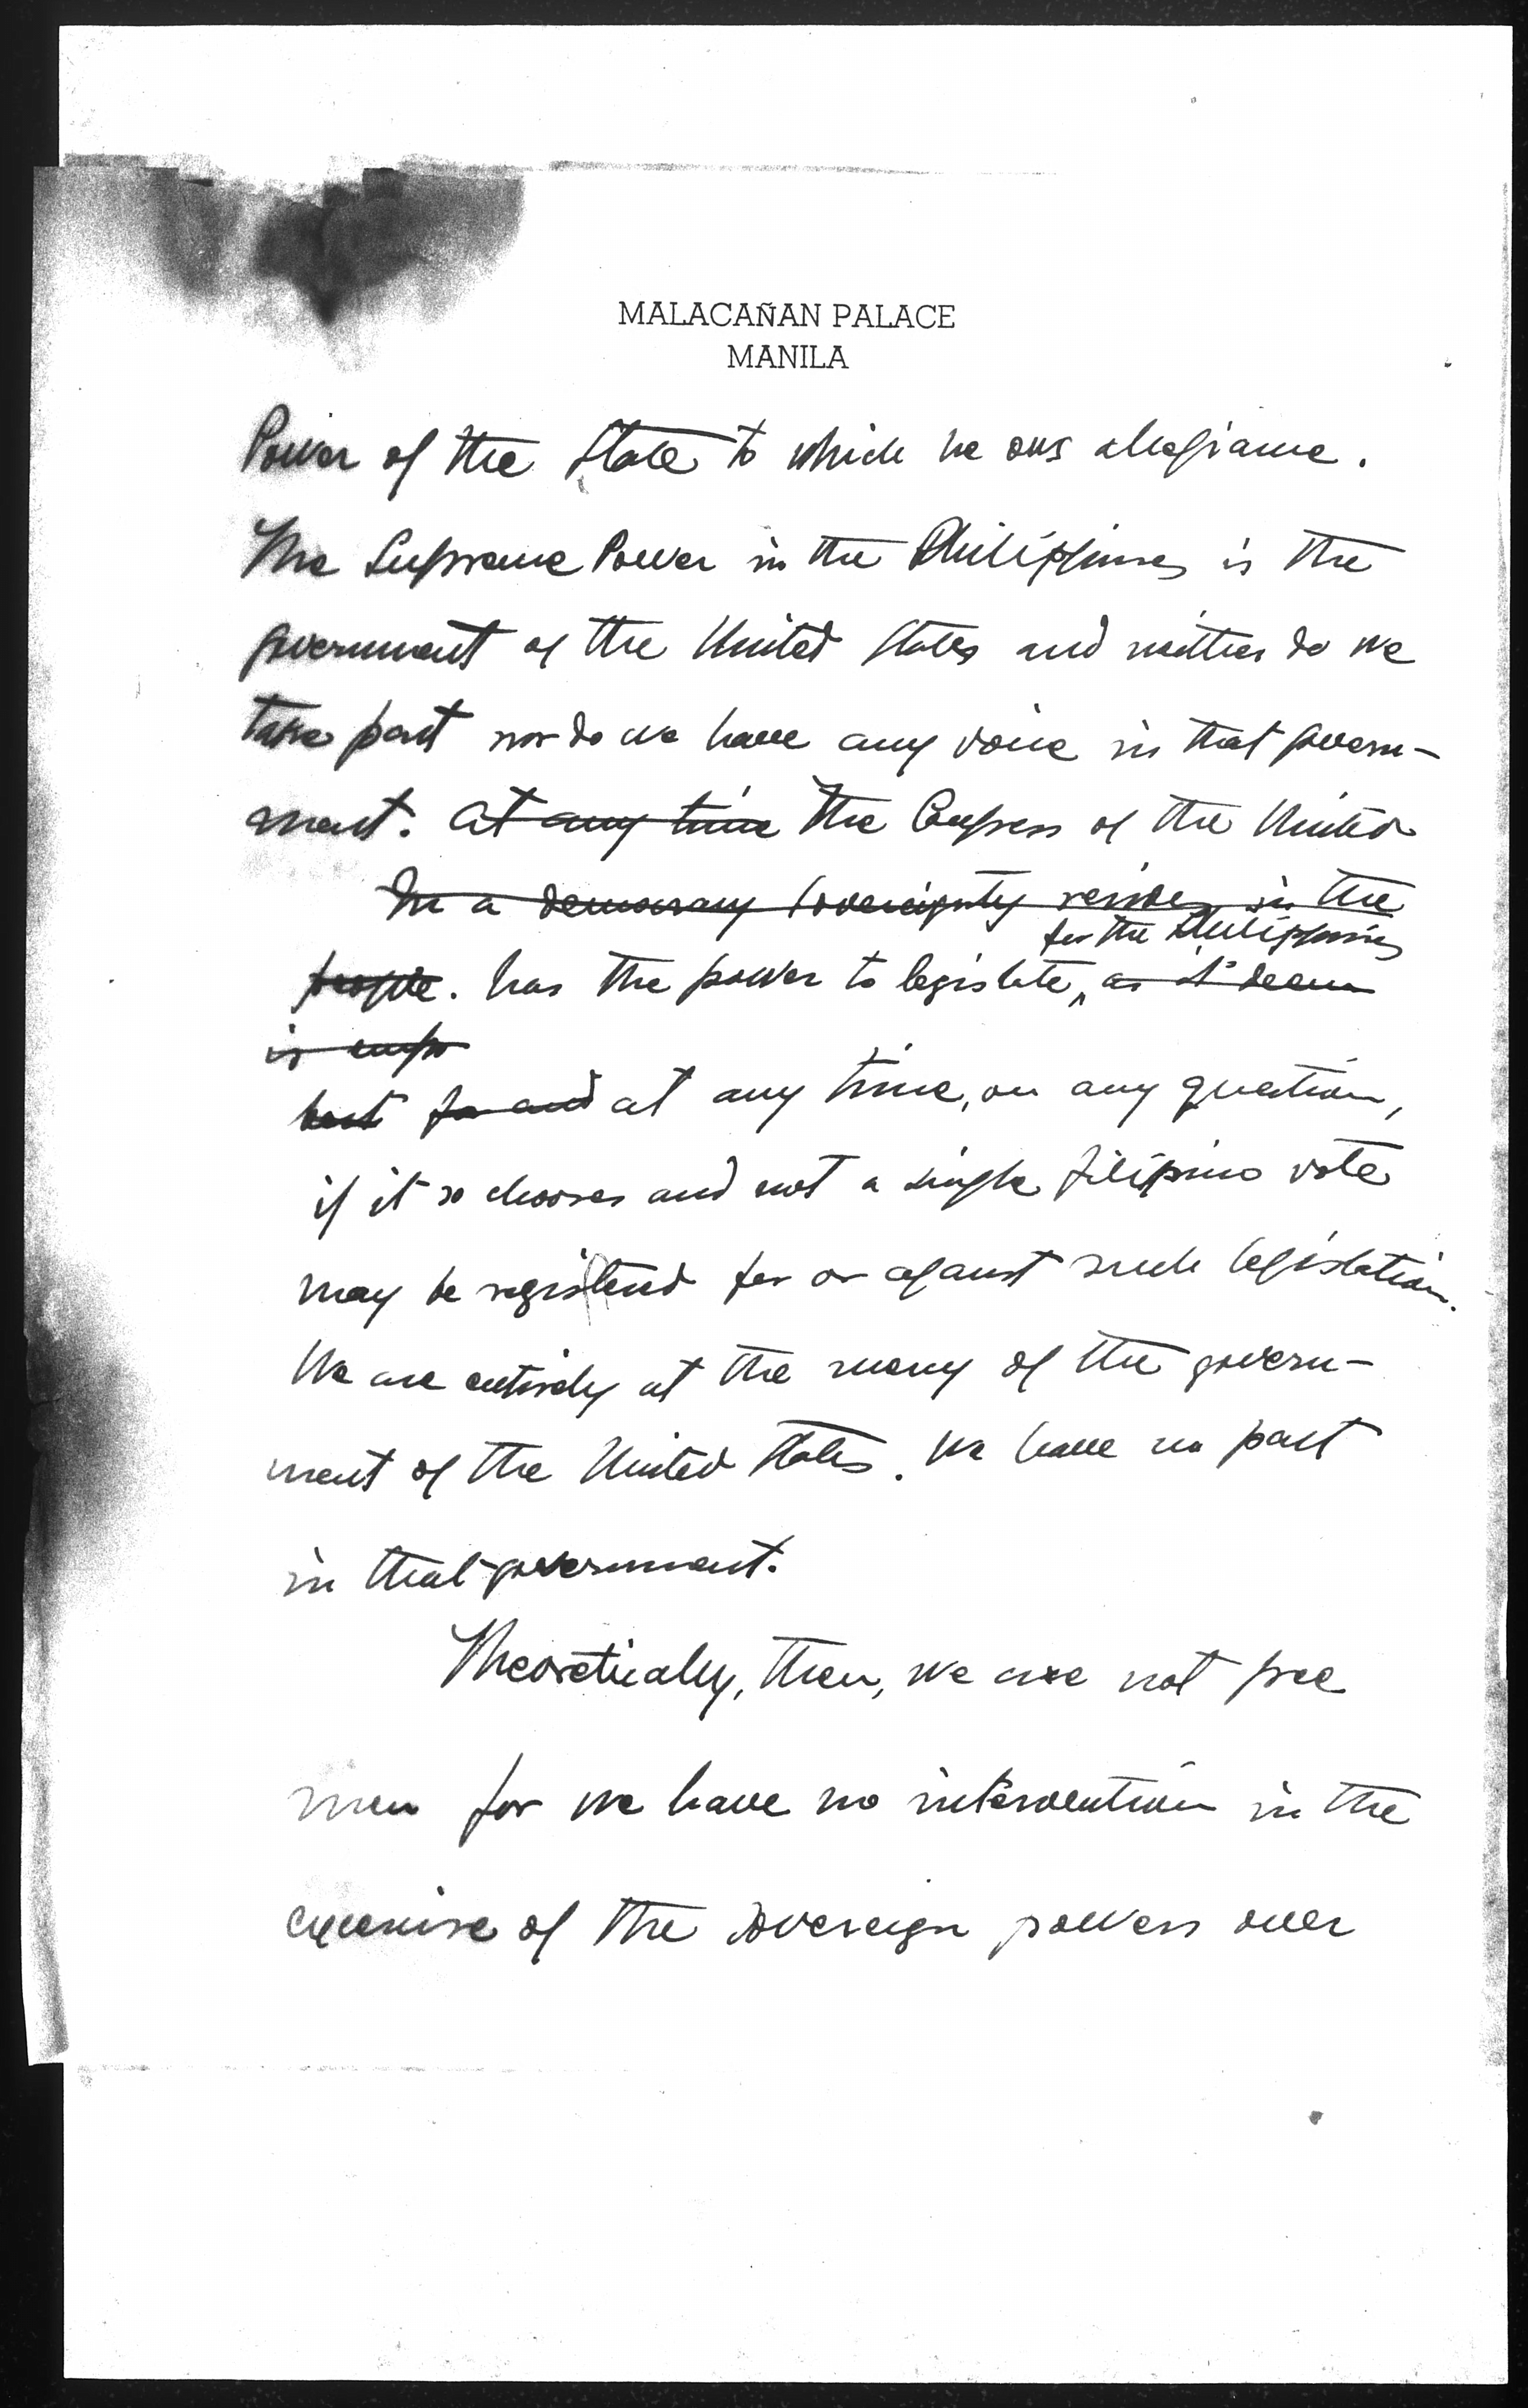 MALACAÑAN PALACE
MANILA
Power of the State to which he ows allegiance.
The Supreme Power in the Philippines is the
government of the United States and neither do we
take part nor do we have any voice in that govern-
ment. At any time The Congress of the United
In a democracy sovereignty resides in the
for the Philippines
people. has the power to legislate, as it deem
is
best for and at any time, on any question,
if it so chooses and not a single Filipino vote
may be registered for or against such legislation.
We are entirely at the mercy of the govern-
ment of the United States. We have no part
in that government.
Theoretically, then, we are not free
men for we have no intervention in the
exercise of the sovereign powers over